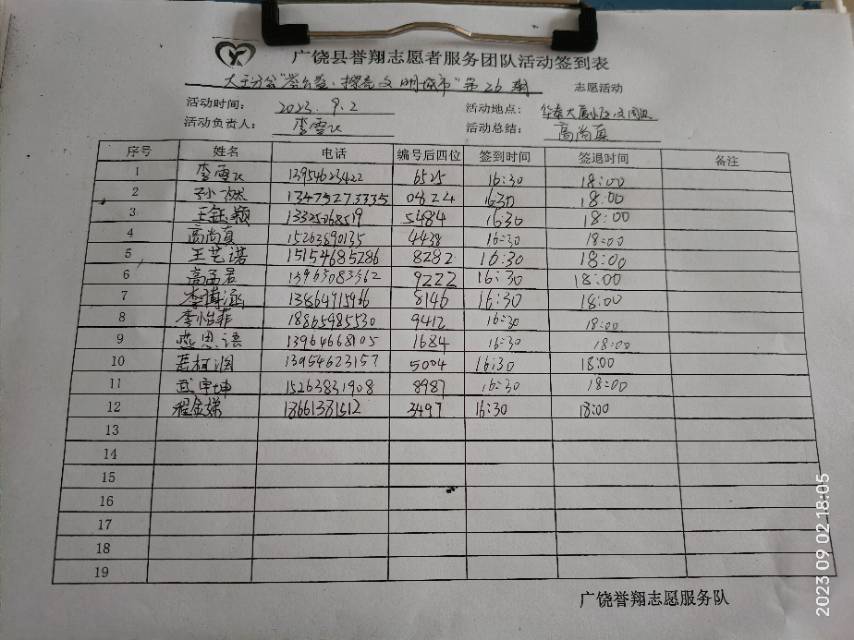 广饶县誉翔志愿者服务团队活动签到表
文明城市"第26期 志愿活动
活动时间: 2023.9.2 活动地点:
活动负责人: 活动总结: 高尚真
序号 姓名 电话 编号后四位 签到时间 签退时间 备注
1 13954623422 6525 16:30 18:00
2 孙 13475273335 0424 1630 18:00
3 王钰颖 13325268519 5484 16:30 18:00
4 高尚真 15263890135 4438 16:30 18:00
5 王艺诺 15154685286 8282 16:30 18:00
6 高孟君 13963083562 9222 16:30 18:00
7 李博涵 8146 16:30 18:00
8 李怡菲 18865985530 9412 16:30 18:00
9 思语 13964668105 1684 16:30 18:00
10 13954623157 5004 16:30 18:00
11 武宇坤 15263831908 8987 16:30 18:00
12 程金娣 18661381512 3497 16:30 18:00
13
14
15
16
17
18
19
广饶誉翔志愿服务队
2023 09 02 18:05